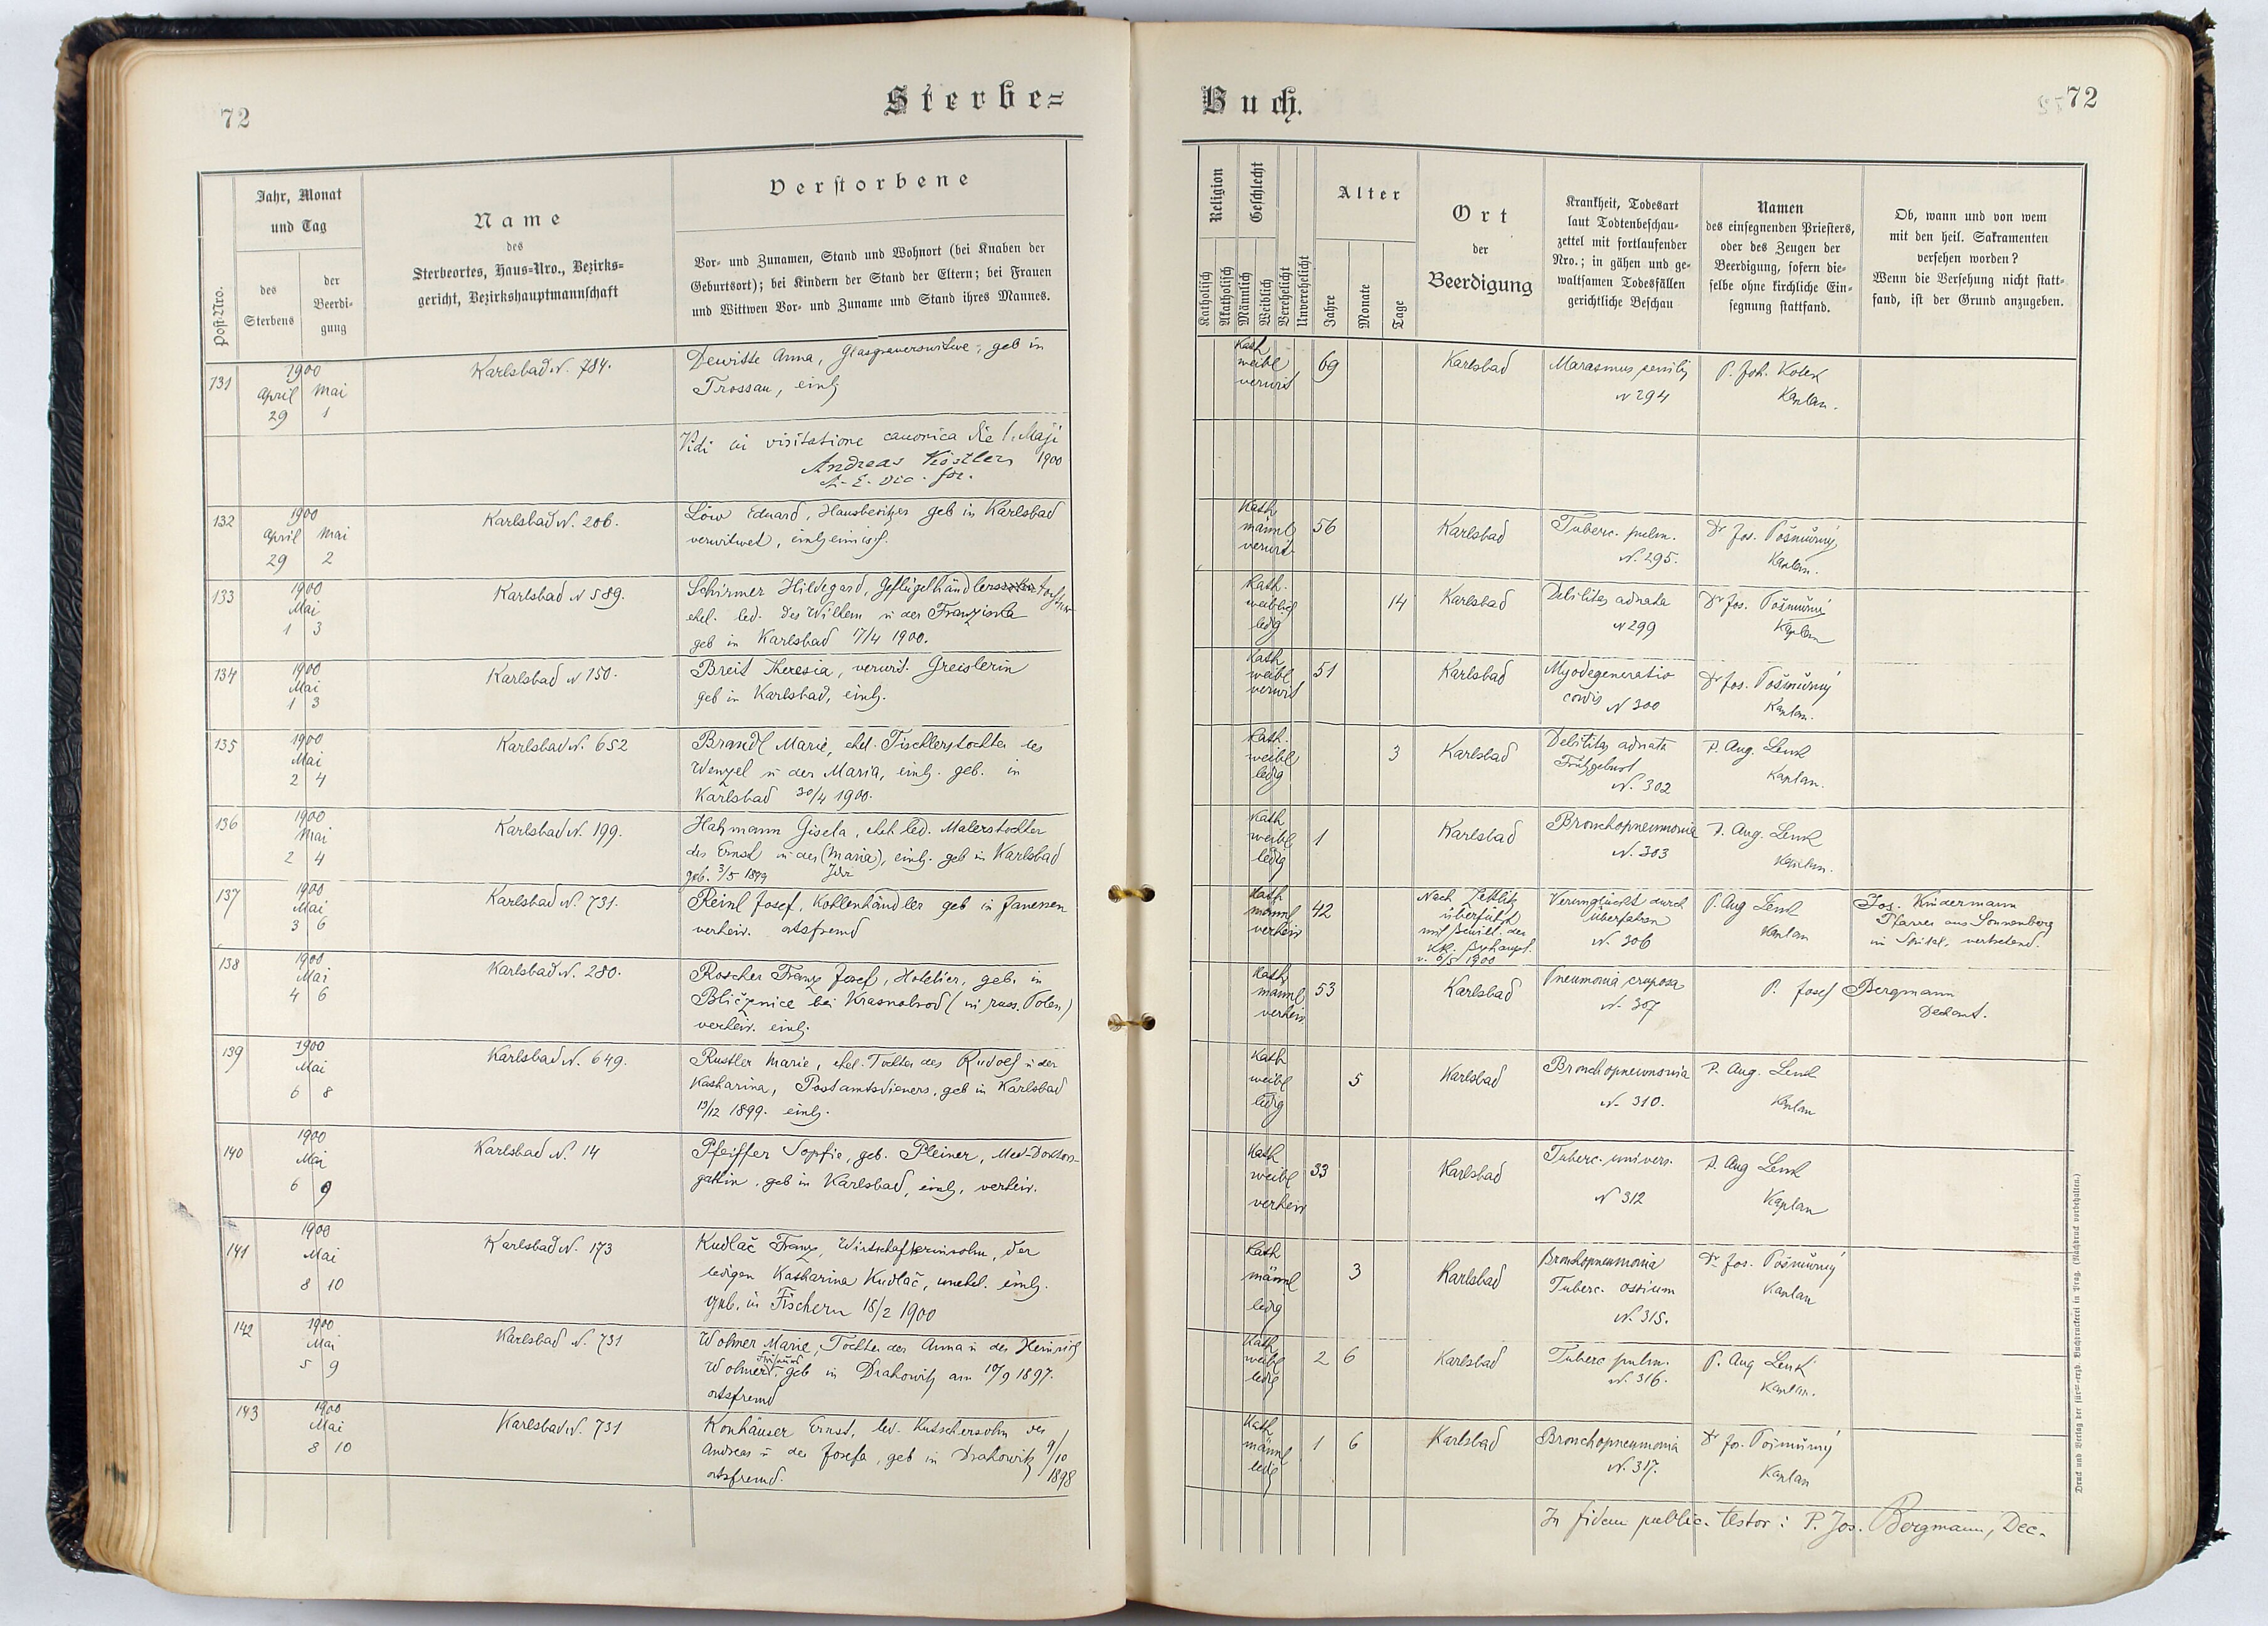 72
Sterbe=
Jahr, Monat
und Tag
Post-Nro.
des
Sterbens
der
Beerdi=
gung
Name
des
Sterbeortes, Haus-Nro., Bezirks=
gericht, Bezirkshauptmannschaft
Verstorbene
Vor- und Zunamen, Stand und Wohnort (bei Knaben der
Geburtsort); bei Kindern der Stand der Eltern; bei Frauen
und Wittwen Vor- und Zuname und Stand ihres Mannes.
131
1900
April Mai
29 1
Karlsbad N. 784.
Dewitte Anna, Glasgraverswitwe, geb in
Trossau, einh
Vidi in visitatione canonica die 1. Maji
Andreas Köstler 1900
A. E. Vic. for.
132
1900
April Mai
29 2
Karlsbad N. 206.
Löw Eduard, Hausbesitzer geb in Karlsbad
verwitwet, einheimisch.
133
1900
Mai
1 3
Karlsbad N 589.
Schirmer Hildegard, Geflügelhändlers tochter
ehel. led. des Wilhem u der Franziska
geb in Karlsbad 17/4 1900.
134
1900
Mai
1 3
Karlsbad N 150.
Breit Theresia, verwit. Greislerin
geb in Karlsbad, einh.
135
1900
Mai
2 4
Karlsbad N. 652
Brandl Marie, ehel. Tischlerstochter des
Wenzel u der Maria, einh. geb. in
Karlsbad 30/4 1900.
136
1900
Mai
2 4
Karlsbad N. 199.
Hahmann Gisela, ehel led. Malerstochter
des Ernst u der (Maria), einh. geb in Karlsbad
geb. 3/5 1899 Ida
137
1900
Mai
3 6
Karlsbad N. 731.
Reinl Josef, Kohlenhändler geb in Janessen
verheir. ortsfremd
138
1900
Mai
4 6
Karlsbad N. 280.
Roscher Franz Josef, Hotelier, geb. in
Bliczenice bei Krasnobrod (in russ. Polen)
verheir. einh.
139
1900
Mai
6 8
Karlsbad N. 649.
Rustler Marie, ehel. Tochter des Rudolf u der
Katharina, Postamtsdieners, geb in Karlsbad
13/12 1899. einh.
140
1900
Mai
6 9
Karlsbad N. 14
Pfeiffer Sopfie, geb. Pleiner, Med-Doktors-
gattin, geb in Karlsbad, einh, verheir.
141
1900
Mai
8 10
Karlsbad N. 173
Kudlač Franz, Wirtschafterinsohn, der
ledigen Katharina Kudlač, unehel. einh.
geb. in Fischern 18/2 1900
142
1900
Mai
5 9
Karlsbad N. 731
Wohner Marie, Tochter der Anna u des Heinrich
Wohner, geb in Drahowitz am 10/9 1897.
ortsfremd
143
1900
Mai
8 10
Karlsbad N. 731
Konhäuser Ernst, led. Kutschersohn des
Andreas u der Josefa, geb in Drahowitz 9/10
ortsfremd. 1898
Buch.
72
Religion
Geschlecht
Katholisch
Akatholisch
Männlich
Weiblich
Verehelicht
Unverehelicht
Alter
Jahre
Monate
Tage
Ort
der
Beerdigung
Krankheit, Todesart
laut Todtenbeschau-
zettel mit fortlaufender
Nro.; in gähen und ge=
waltsamen Todesfällen
gerichtliche Beschau
Namen
des einsegnenden Priesters,
oder des Zeugen der
Beerdigung, sofern die=
selbe ohne kirchliche Ein=
segnung stattfand.
Ob, wann und von wem
mit den heil. Sakramenten
versehen worden?
Wenn die Versehung nicht statt-
fand, ist der Grund anzugeben.
Kath
weibl
verwit
69
Karlsbad
Marasmus senilis
N 294
P. Joh. Kotek
Kaplan.
Kath
männl
verwit
56
Karlsbad
Tuberc. pulm.
N. 295.
Dr Jos. Pošmůrný
Kaplan.
Kath.
weiblich
ledig
14
Karlsbad
Debilitas adnata
N 299
Dr Jos. Pošmůrný
Kaplan
Kath
weibl
verwit
51
Karlsbad
Myodegeneratio
cordis N 300
Dr Jos. Pošmůrný
Kaplan.
Kath.
weibl
ledig
3
Karlsbad
Debilitas adnata
Frühgeburt
N. 302
P. Aug. Lenk
Kaplan.
Kath
weibl
ledig
1
Karlsbad
Bronchopneumonia
N. 303
P. Aug. Lenk
Kaplan.
Kath
männl
verheir
42
Nach Zettlitz
überführt
mit Bewill. der
v. 6/5 1900
Verunglückt durch
Überfahren
N. 306
P. Aug Lenk
Kaplan
Jos. Kindermann
Pfarrer aus Sonnenberg
im Spital, vertretend.
Kath
männl
verheir
53
Karlsbad
Pneumonia cruposa
N. 307
P. Josef Bergmann
Dechant.
Kath
weibl
ledig
5
Karlsbad
Bronchopneumonia
N. 310.
P. Aug. Lenk
Kaplan
Kath
weibl
verheir
33
Karlsbad
Tuberc. univers.
N 312
P. Aug Lenk
Kaplan
Kath
männl
ledig
3
Karlsbad
Bronchopneumonia
Tuberc. ossium
N. 315.
Dr Jos. Pošmůrný
Kaplan
Kath
weibl
ledig
2 6
Karlsbad
Tuberc pulm.
N. 316.
P. Aug Lenk
Kaplan.
Kath
männl
ledig
1 6
Karlsbad
Bronchopneumonia
N. 317.
Dr Jos. Pošmůrný
Kaplan
In fidem public. testor: P. Jos. Bergmann, Dec.
Druck und Verlag der fürst-erzb. Buchdruckerei in Prag. (Nachdruck vorbehalten.)